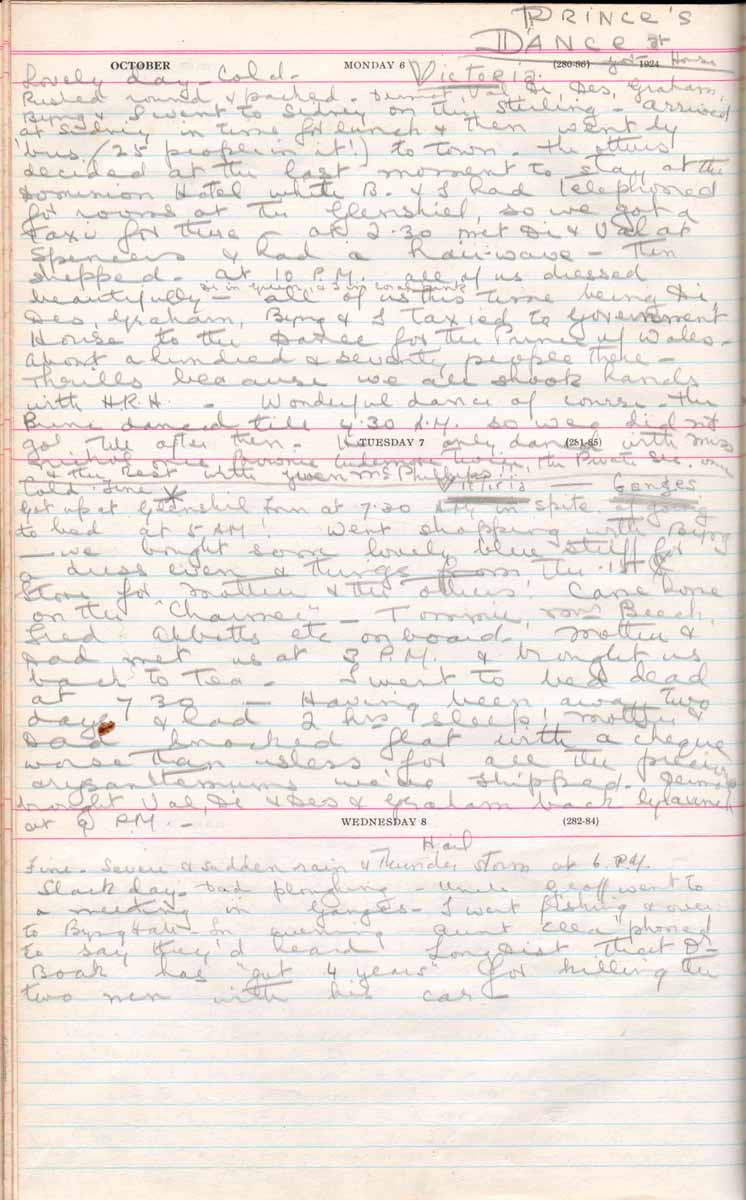 PRINCE'S
DANCE at
Govt House
OCTOBER MONDAY 6 (280-86) 1924
Lovely day - Cold - Victoria.
Rushed round & packed - Dermot, Val Di, Des, Graham,
Byng & I went to Sidney on the stirling - arrived
at Sidney in time for lunch & then went by
'bus (25 people in it!) to town - the others
decided at the last moment to stay at the
Dominion Hotel while B. & I had telephoned
for rooms at the Glenshiel, so we got a
taxi for there - at 2.30 met Di & Val at
Spencers & had a hair-wave - then
shopped - at 10 P.M. all of us dressed
Di in green, & I in
beautifully - all of us this time being Di,
Des, Graham, Byng & I taxied to Government
House to the Dance for the Prince of Wales -
About a hundred & seventy people there -
Thrills because we all shook hands
with H.R.H. - Wonderful dance of course - the
Prince danced till 4.30 A.M. so we did not
go till after then - He only danced with miss
TUESDAY 7 (281-85)
& the Rest with the Private Sec.
Cold - Fine Victoria - Ganges
Get up at Glenshiel Inn at 7.30 A.M. in spite of going
to bed at 5 A.M! Went shopping with Byng
- we bought some lovely blue stuff for
a dress even & things from the 15¢
Store for mother & the others! Came home
on the "Charmer" - Tommie, Mrs Beech,
Fred Abbotts etc on board - Mother &
Dad met us at 3 P.M. & brought us
back to Tea - I went to bed dead
at 7 30 - Having been away two
days & had 2 hrs sleep! Mother &
Dad knocked flat with a cheque
worse than usless for all the precious
crysantemums we've shipped - Dermot
brought Val, Di & Des & Graham back by launch
at 9 P.M. -
WEDNESDAY 8 (282-84)
Hail
Fine - Severe & sudden rain & Thunder storm at 6. P.M.
Slack day - Dad ploughing - Uncle Geoff went to
a meeting in Ganges - I went fishing & over
to Byng late - In evening aunt Cea phoned
to say they'd heard Longdist that Dr
Boak has "got 4 years" for killing the
two men with his car -